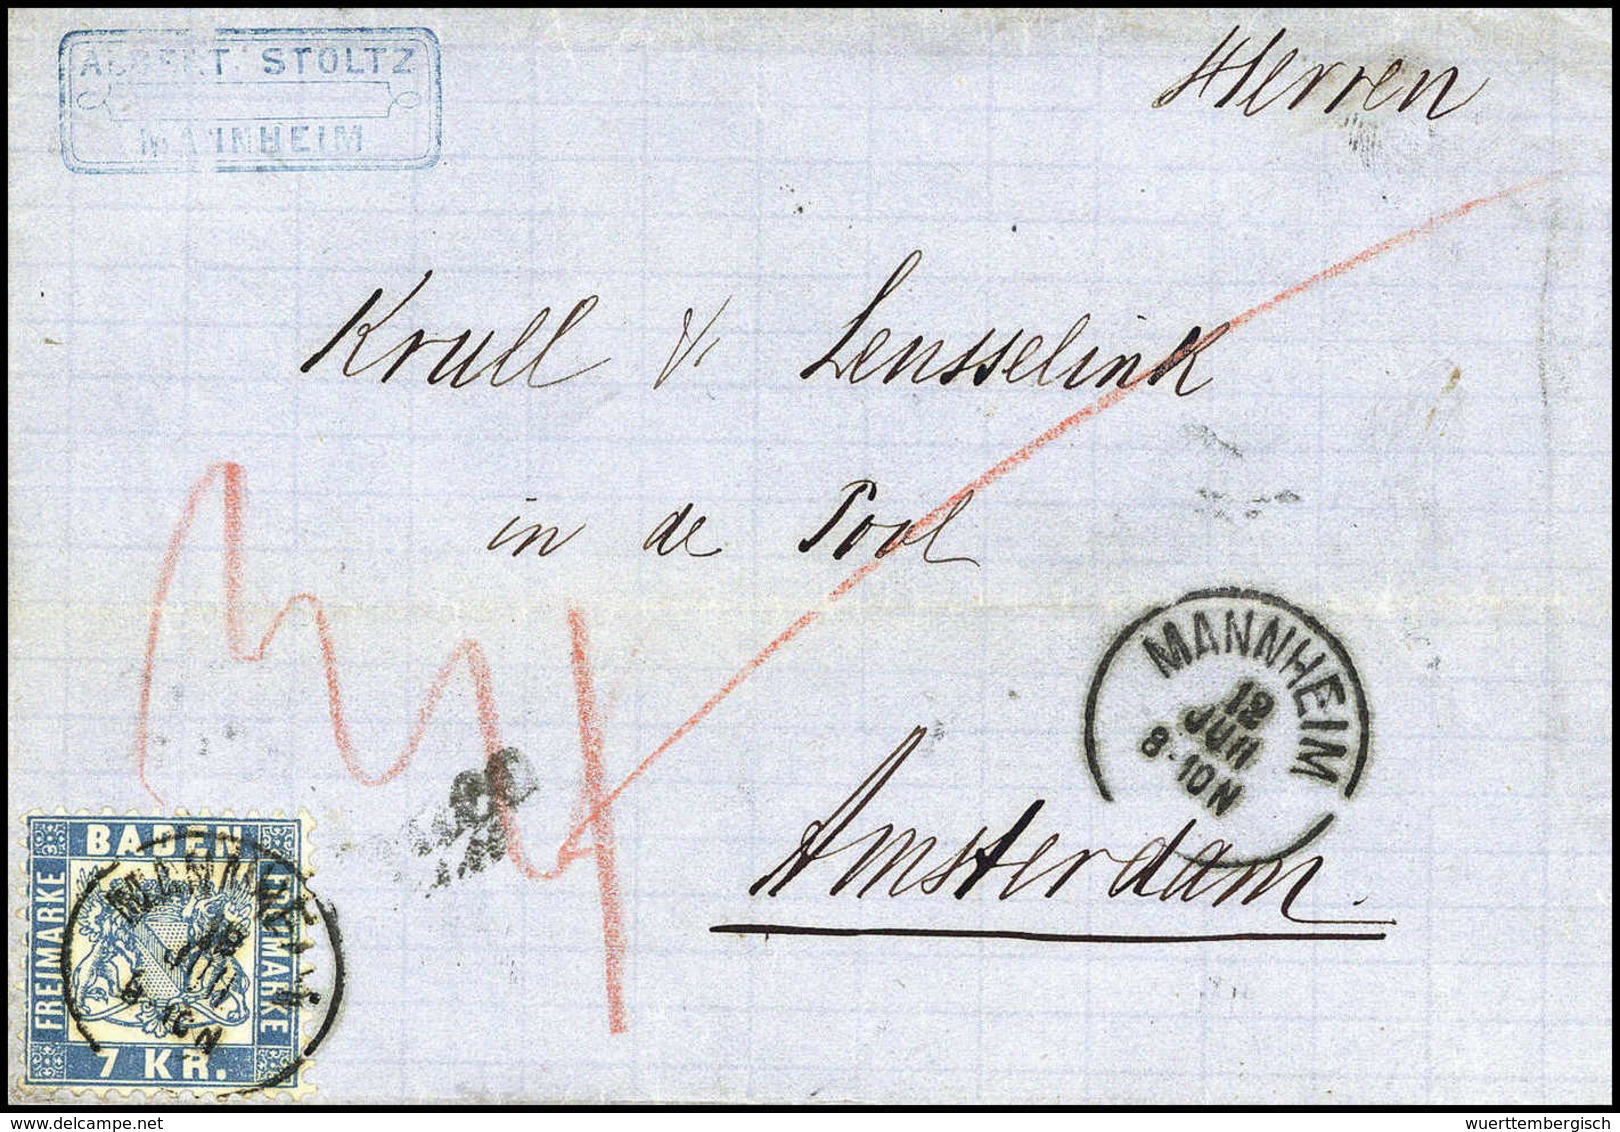 ALBERT STOLTZ
MANNHEIM
Herren
Krull & Lensselink
in de Pool
Amsterdam.
MANNHEIM
12
JUN
8-10 N
BADEN
FREIMARKE
FREIMARKE
7 KR.
MANNHEIM
12
JUN
8-10 N
©wuerttembergisch